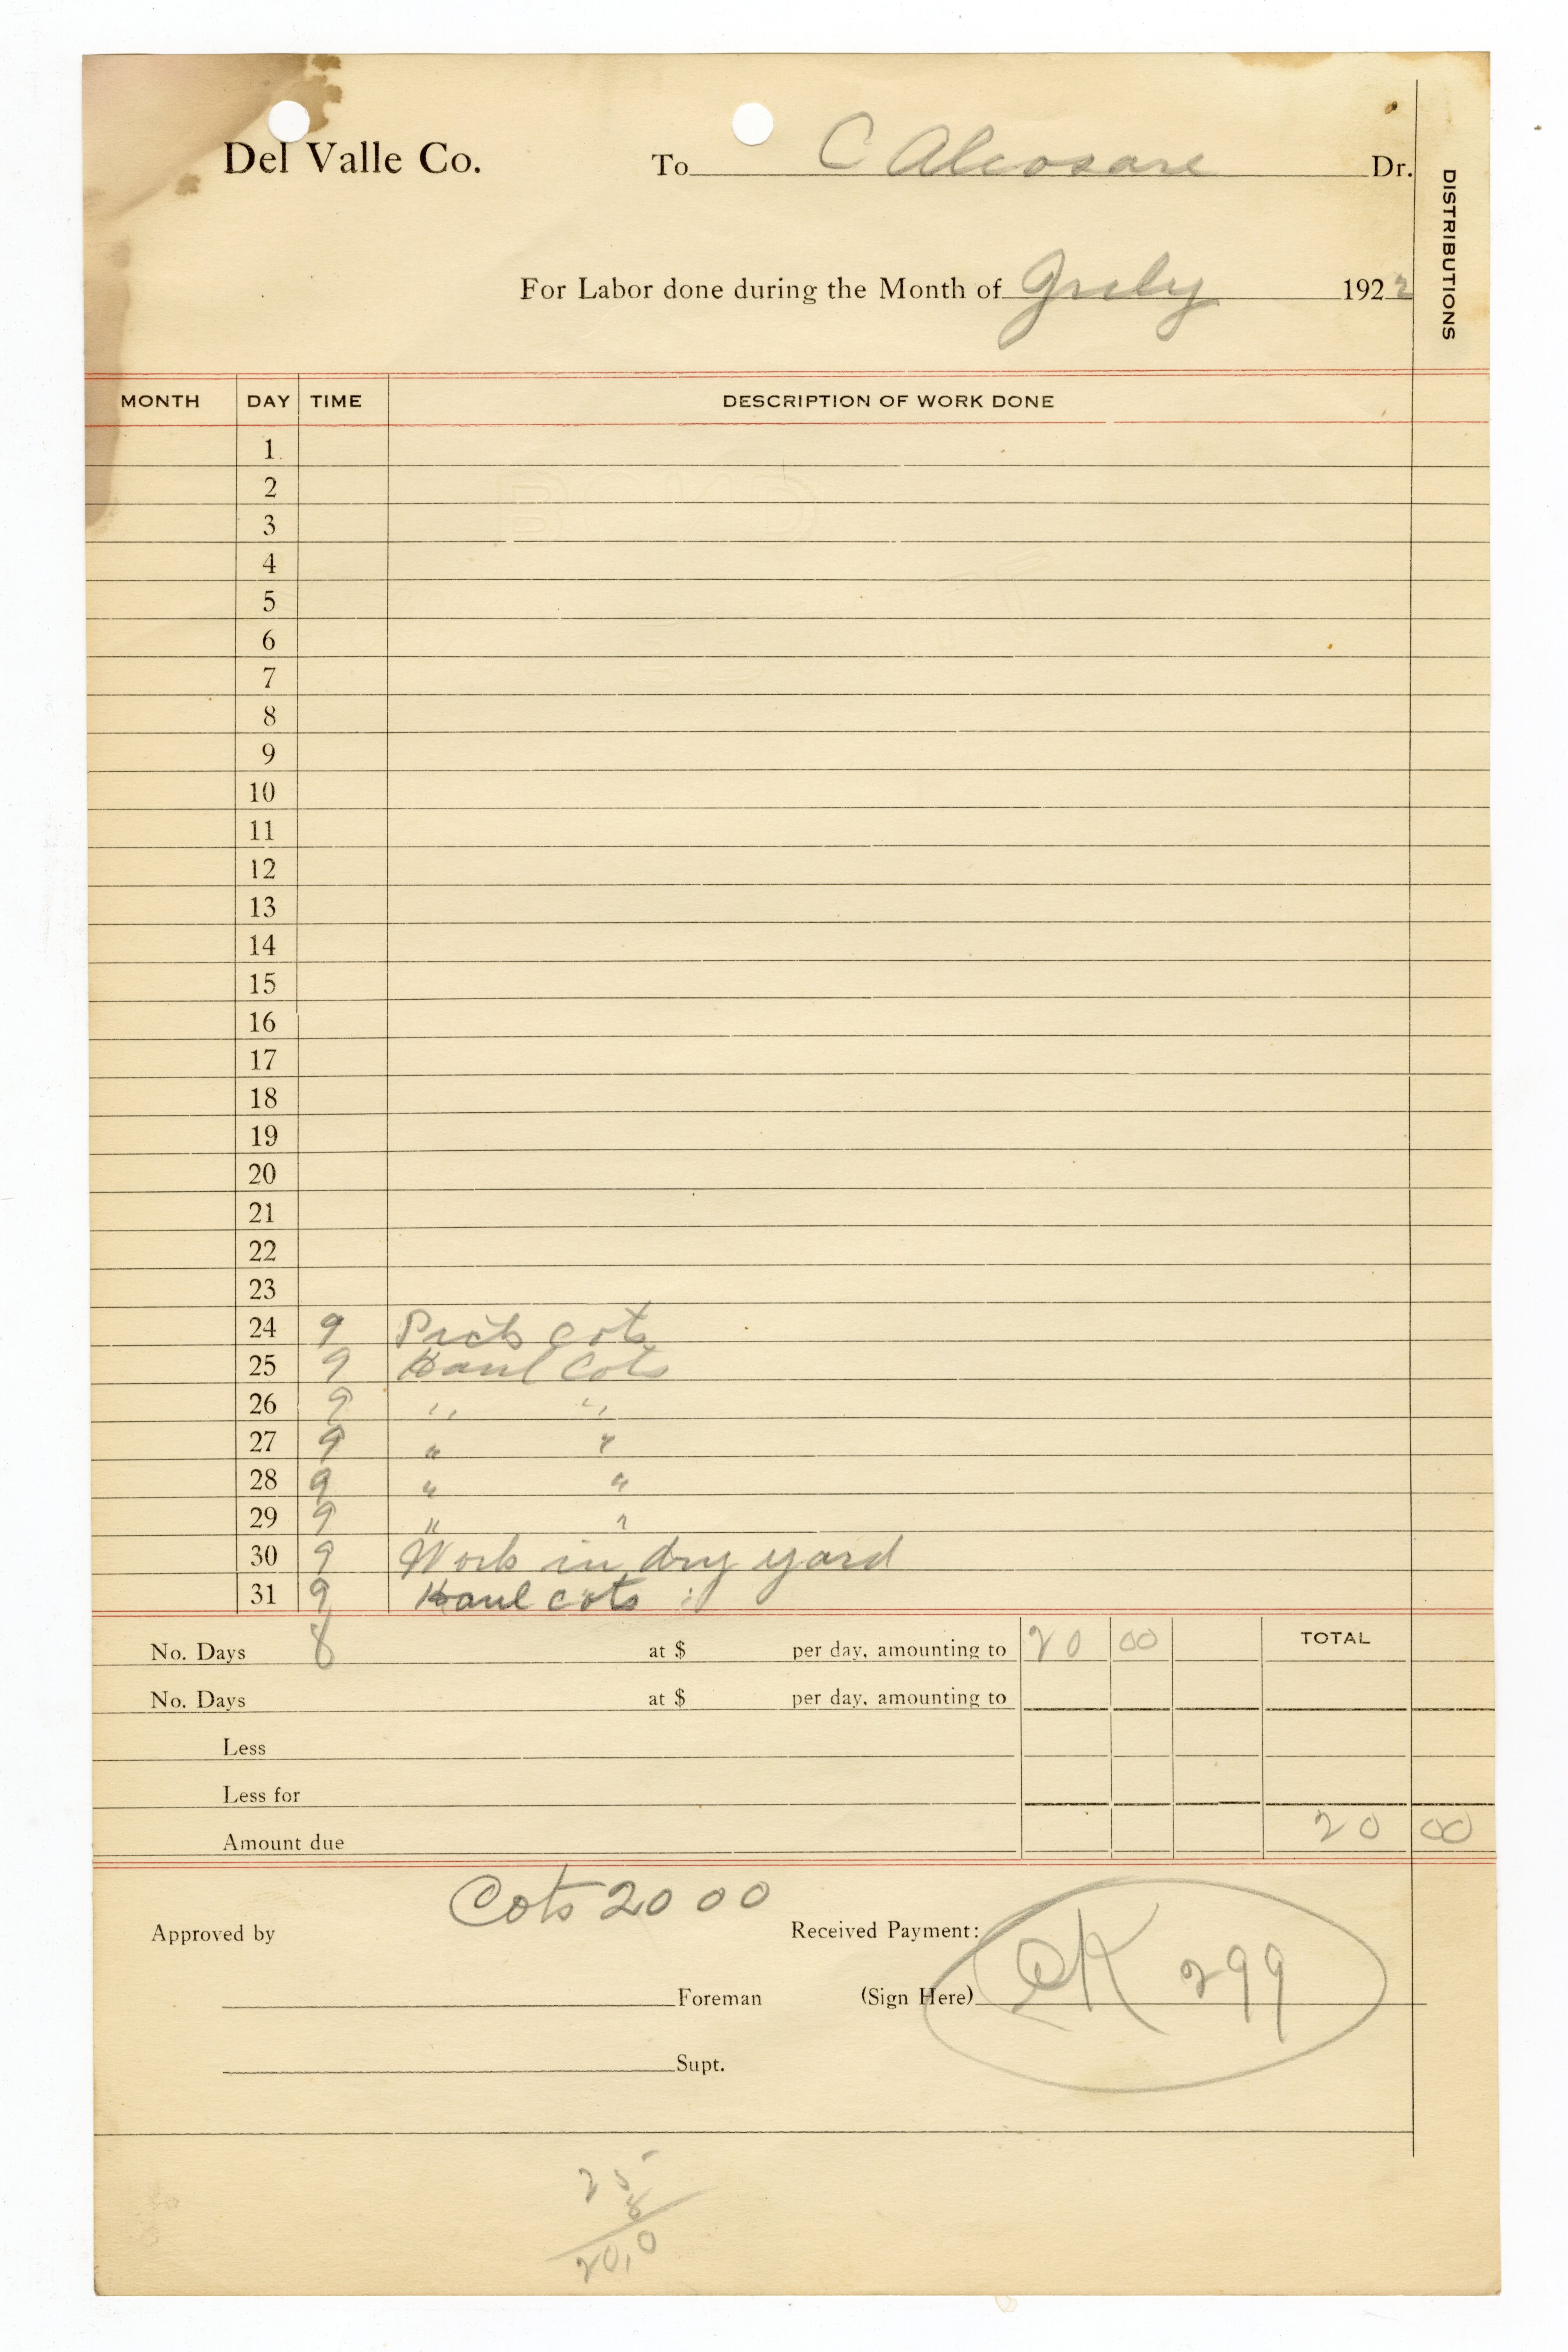 Del Valle Co. To C Alcosare Dr.
DISTRIBUTIONS
For Labor done during the Month of July 1922
MONTH DAY TIME DESCRIPTION OF WORK DONE
1
2
3
4
5
6
7
8
9
10
11
12
13
14
15
16
17
18
19
20
21
22
23
24 9 Pick cots
25 9 Haul Cots
26 9 " "
27 9 " "
28 9 " "
29 9 " "
30 9 Work in dry yard
31 9 Haul cots
No. Days 8 at $ per day, amounting to 20 00 TOTAL
No. Days at $ per day, amounting to
Less
Less for
Amount due 20 00
Cots 20 00
Approved by Received Payment:
OK 299
Foreman (Sign Here)
Supt.
25
8
20,0